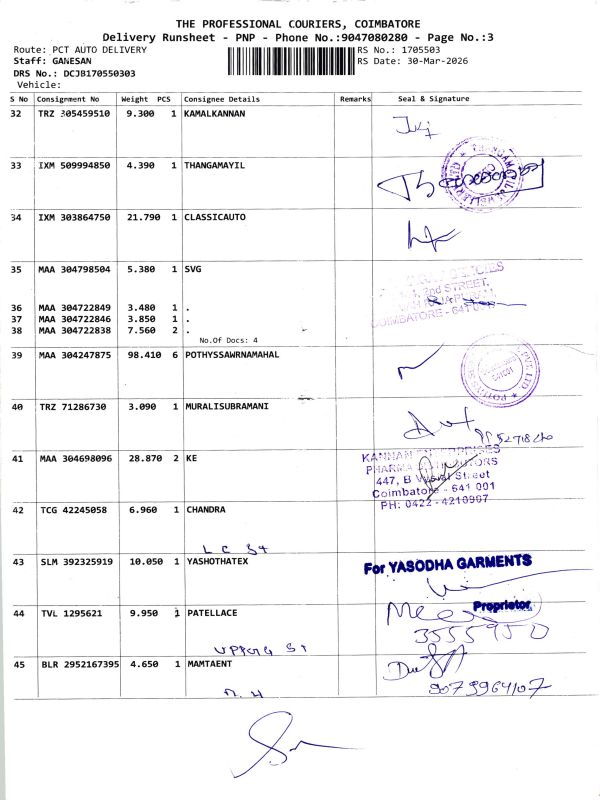 THE PROFESSIONAL COURIERS, COIMBATORE
Delivery Runsheet - PNP - Phone No.:9047080280 - Page No.:3
Route: PCT AUTO DELIVERY RS No.: 1705503
Staff: GANESAN RS Date: 30-Mar-2026
DRS No.: DCJB170550303
Vehicle:
S No Consignment No Weight PCS Consignee Details Remarks Seal & Signature
32 TRZ 305459510 9.300 1 KAMALKANNAN
33 IXM 509994850 4.390 1 THANGAMAYIL
34 IXM 303864750 21.790 1 CLASSICAUTO
35 MAA 304798504 5.380 1 SVG
2nd STREET,
COIMBATORE - 641
36 MAA 304722849 3.480 1 .
37 MAA 304722846 3.850 1 .
38 MAA 304722838 7.560 2 .
No.Of Docs: 4
39 MAA 304247875 98.410 6 POTHYSSAWRNAMAHAL
40 TRZ 71286730 3.090 1 MURALISUBRAMANI
41 MAA 304698096 28.870 2 KE
KANNAN
PHARMA
447, B Street
Coimbatore - 641 001
PH: 0422 - 4210997
42 TCG 42245058 6.960 1 CHANDRA
L C St
43 SLM 392325919 10.050 1 YASHOTHATEX
For YASODHA GARMENTS
Proprietor
44 TVL 1295621 9.950 1 PATELLACE
45 BLR 2952167395 4.650 1 MAMTAENT
9073964107